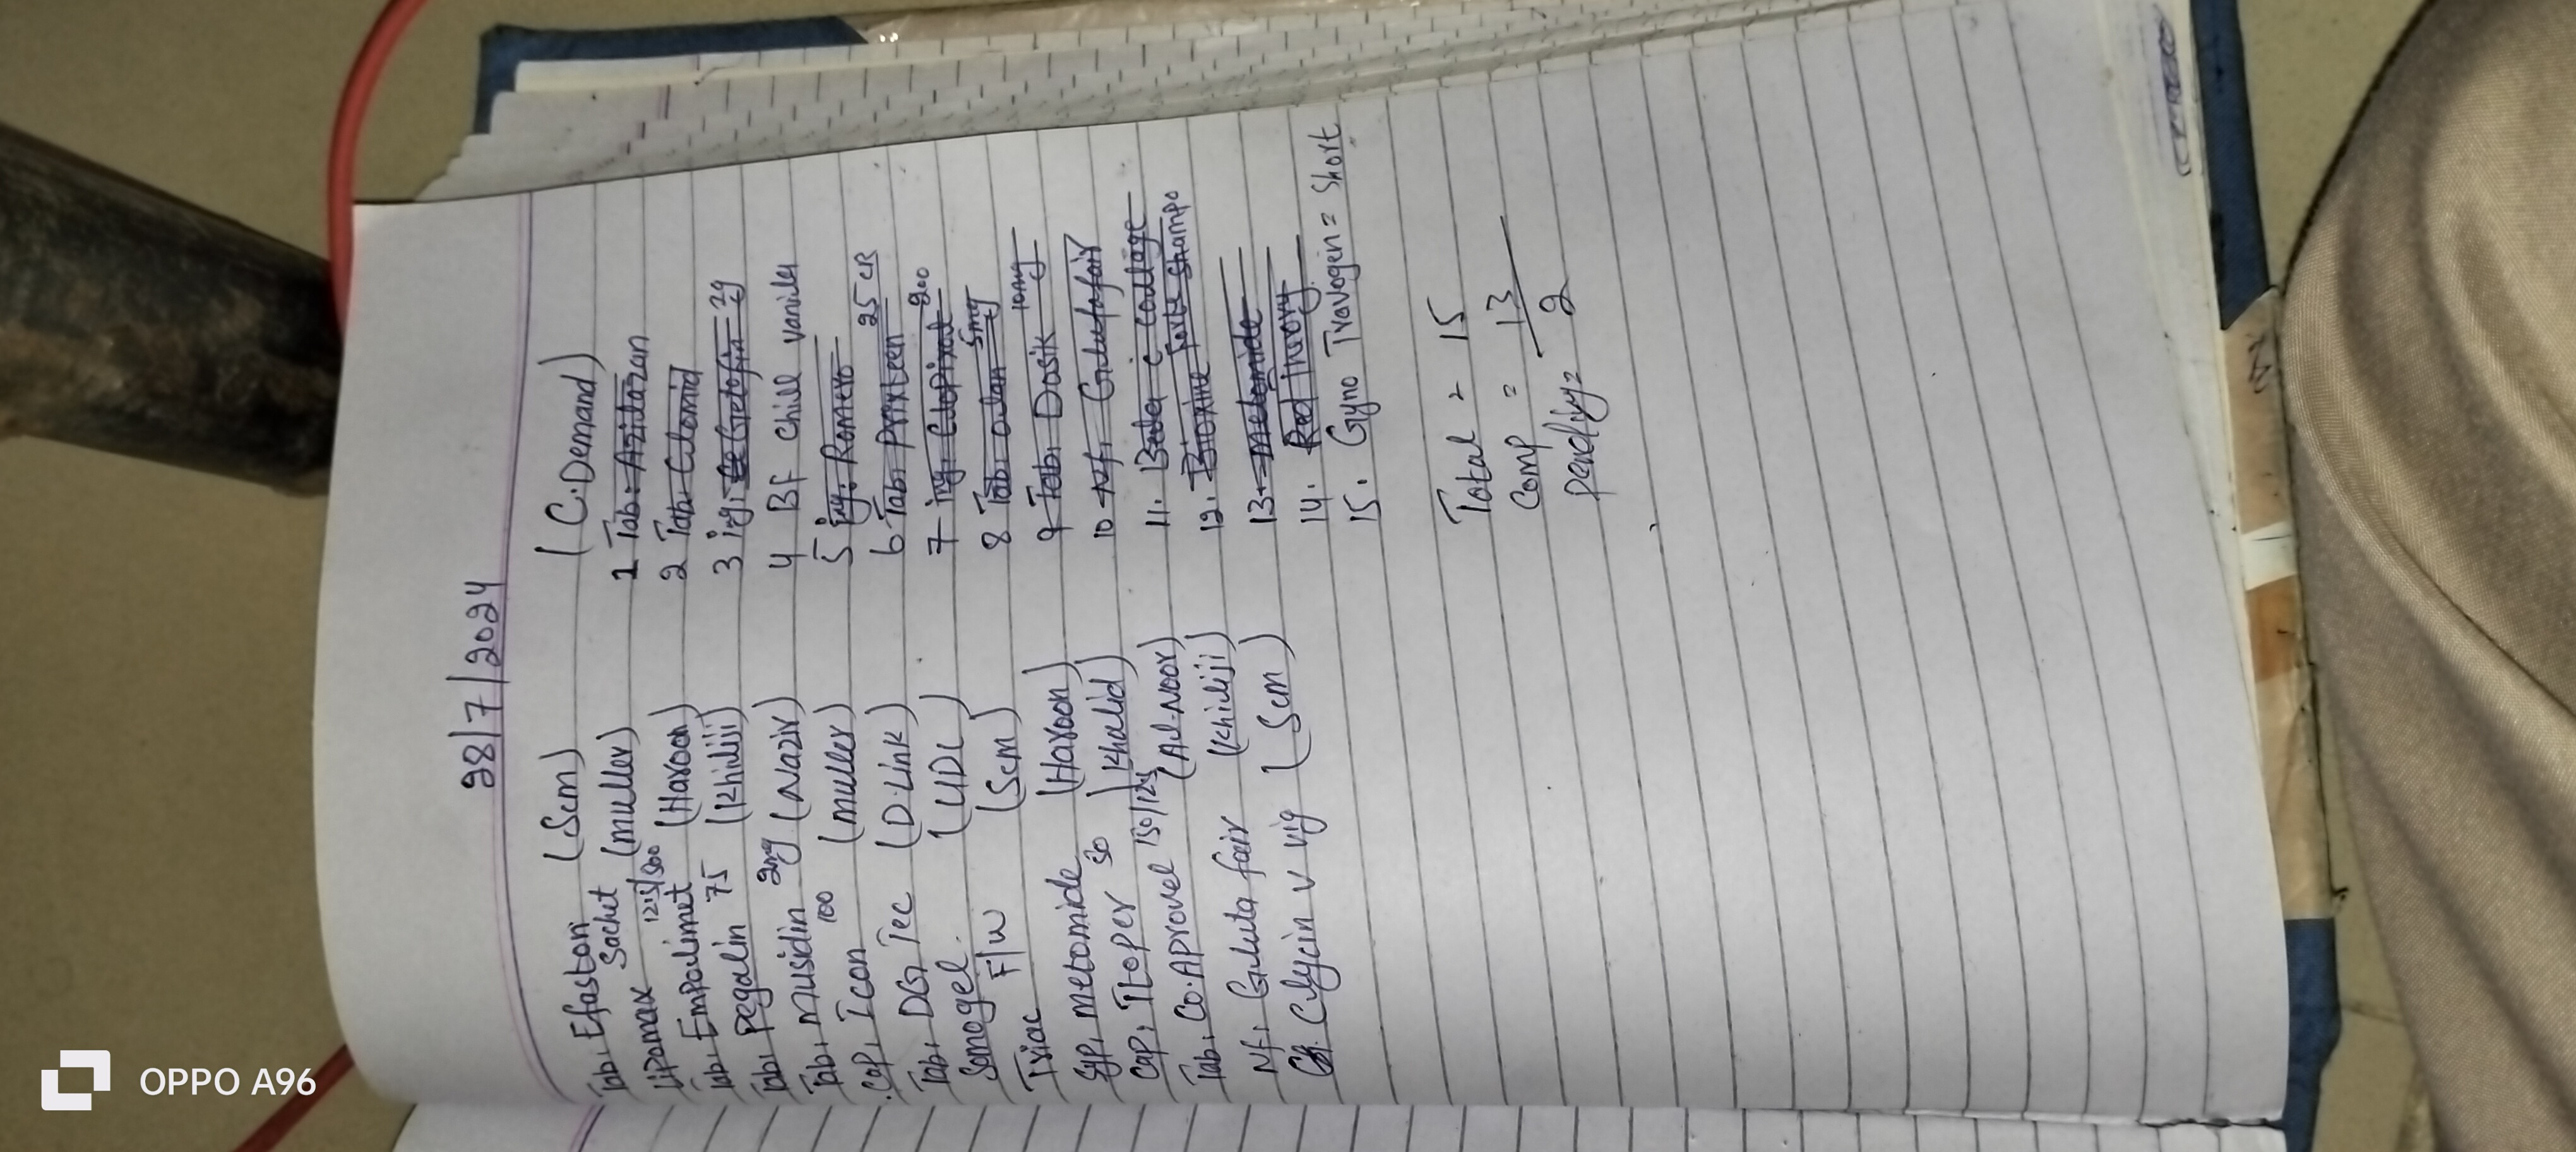 28/7/2024
Tab, Efaston (Scm)
Lipomax Sachet (muller)
Tab, Empolimet 12.5/500 (Haroon)
Tab, Pegalin 75 (Khiliji)
Tab, Nusidin 2mg (Nazir)
Cap, Icon 100 (muller)
Tab, DG, Tec (D.Link)
Sonogel. (UDL)
Triac F/W (Scm)
Syp, metomide (Haroon)
Cap, Itoper 50 (Khalid)
Tab, Co.Aprovel 150/12.5 (Al-Noor)
Nf, Gluta fair (Khiliji)
Clycin v vig (Scm)
(C.Demand)
1 Tab. Azitazan
2 Tab. Clomid
3 inj. Getofin 2g
4 BF Chill vanilla
5 inj. Romero
6 Tab, Prixteen 25 CR
7 inj, Clopixol 200
8 Tab, 5mg
9 Tab, Dosik 10mg
10 Nf, Glutafair
11. Beta c
12. Bioxine Forte Shampo
13. metomide
14. Red Ivory
15. Gyno Travogen = Short
Total = 15
Comp = 13
Pending = 2
OPPO A96